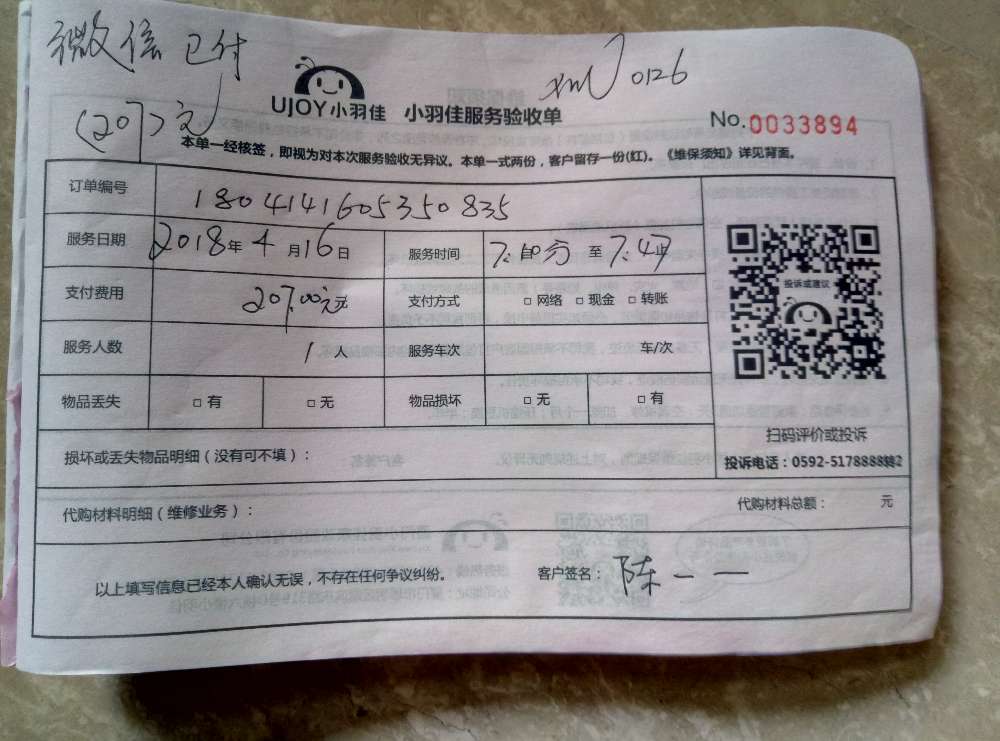 微信已付
(207元)
xmJ 0126
UJOY小羽佳 小羽佳服务验收单
No.0033894
本单一经核签，即视为对本次服务验收无异议。本单一式两份，客户留存一份(红)。《维保须知》详见背面。
订单编号 180414160535083​5
服务日期 2018年4月16日 服务时间 至 7:47止
支付费用 207.00元元 支付方式 □网络 □现金 □转账
服务人数 1人 服务车次 车/次
物品丢失 □有 □无 物品损坏 □无 □有
投诉或建议
扫码评价或投诉
投诉电话：0592-5178888转2
损坏或丢失物品明细（没有可不填）：
代购材料明细（维修业务）： 代购材料总额： 元
以上填写信息已经本人确认无误，不存在任何争议纠纷。 客户签名：陈一一